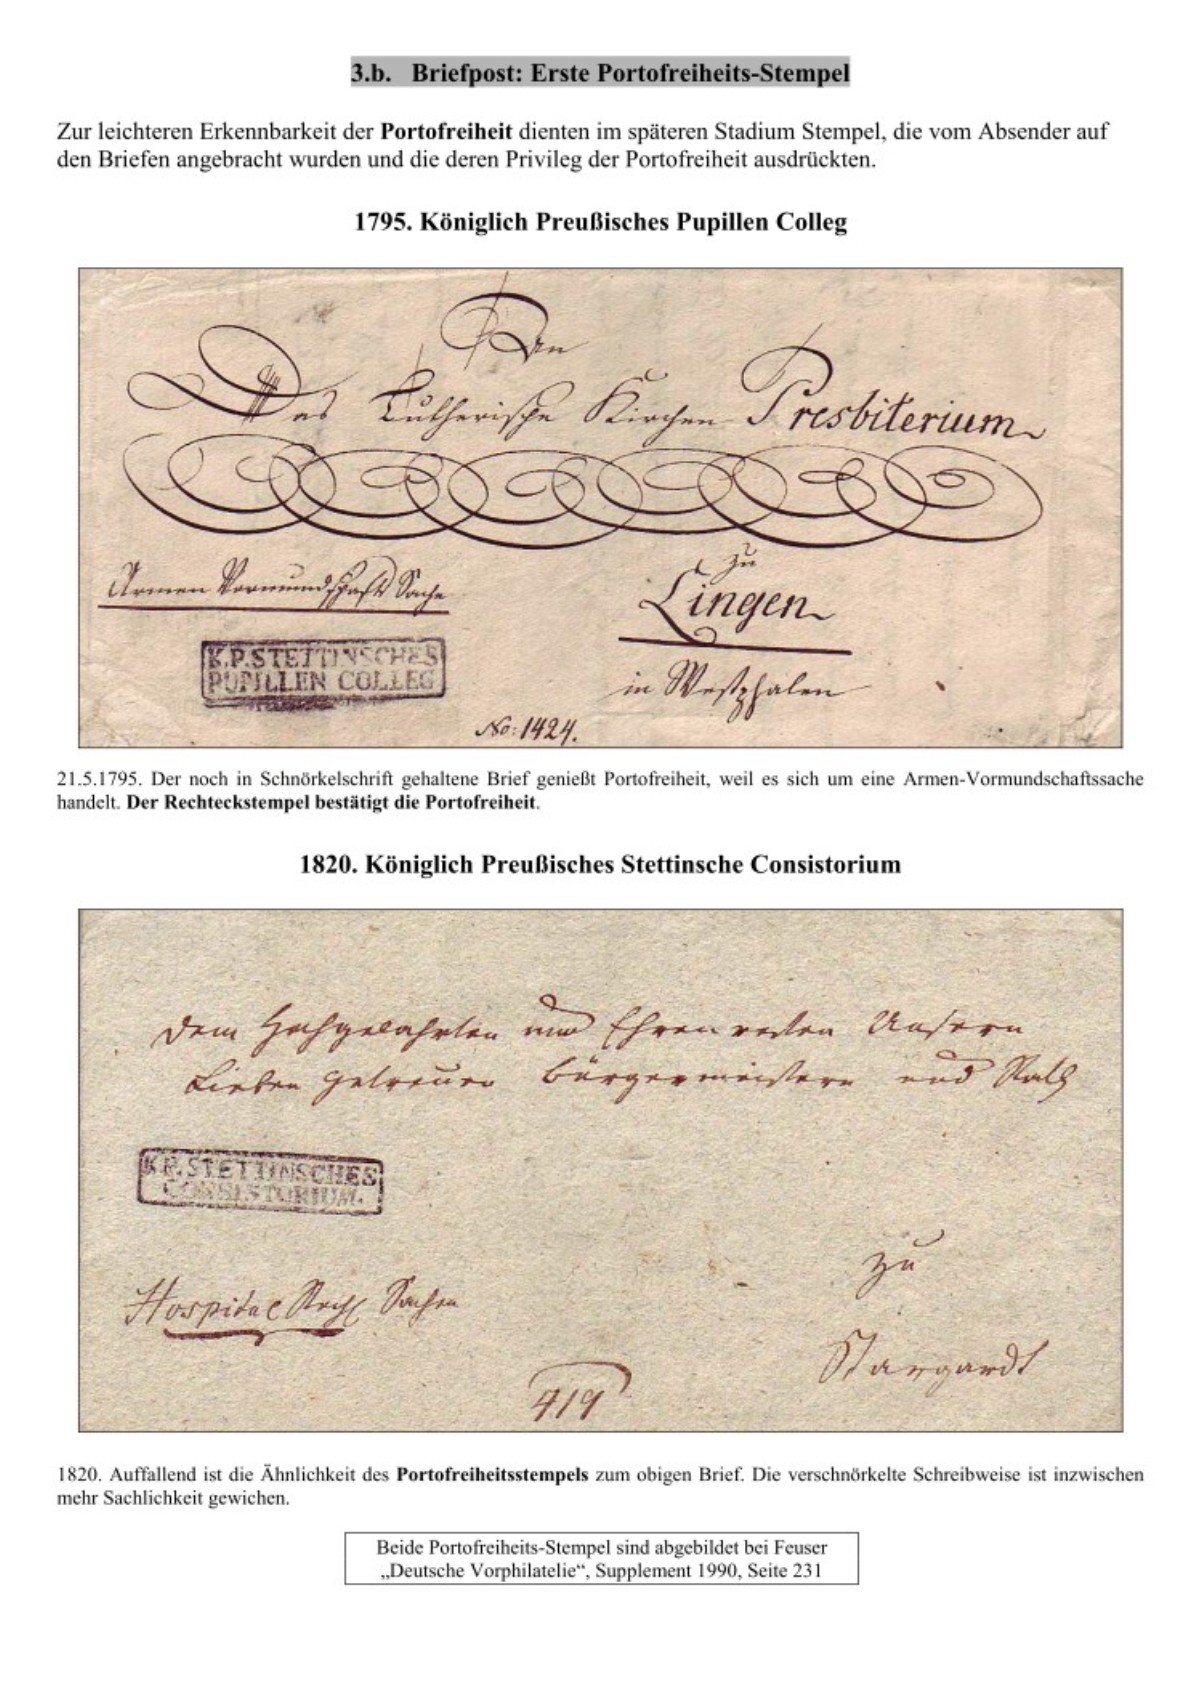 3.b. Briefpost: Erste Portofreiheits-Stempel
Zur leichteren Erkennbarkeit der Portofreiheit dienten im späteren Stadium Stempel, die vom Absender auf
den Briefen angebracht wurden und die deren Privileg der Portofreiheit ausdrückten.
1795. Königlich Preußisches Pupillen Colleg
An
Das Lutherische Kirchen Presbiterium
Armen Vormundschafts Sache
zu
Lingen
K.P.STETTINSCHES
PUPILLEN COLLEG
in Westphalen
No: 1424.
21.5.1795. Der noch in Schnörkelschrift gehaltene Brief genießt Portofreiheit, weil es sich um eine Armen-Vormundschaftssache
handelt. Der Rechteckstempel bestätigt die Portofreiheit.
1820. Königlich Preußisches Stettinsche Consistorium
Dem Hochgelahrten und Ehrenvesten Unsern
Lieben Getreuen Bürgermeistern und Rath
K.P.STETTINSCHES
CONSISTORIUM.
zu
Hospital Sachen
Stargardt
419
1820. Auffallend ist die Ähnlichkeit des Portofreiheitsstempels zum obigen Brief. Die verschnörkelte Schreibweise ist inzwischen
mehr Sachlichkeit gewichen.
Beide Portofreiheits-Stempel sind abgebildet bei Feuser
„Deutsche Vorphilatelie“, Supplement 1990, Seite 231